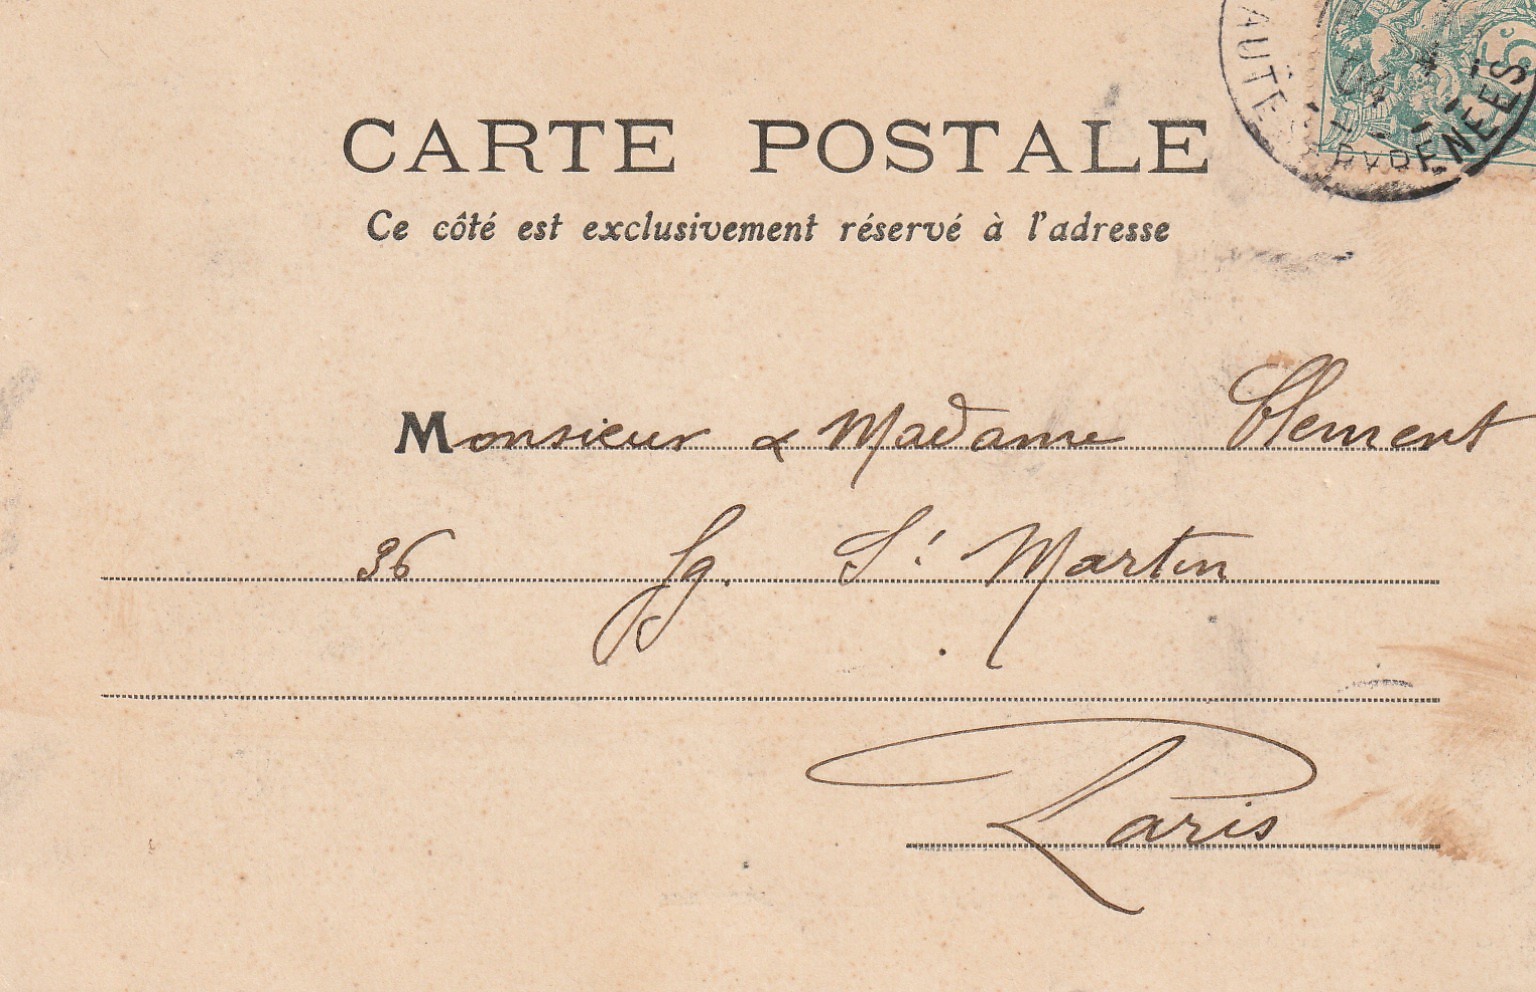 CARTE POSTALE
Ce côté est exclusivement réservé à l'adresse
HAUTES PYRÉNÉES
5
Monsieur & Madame Clement
36 fg. St Martin
Paris